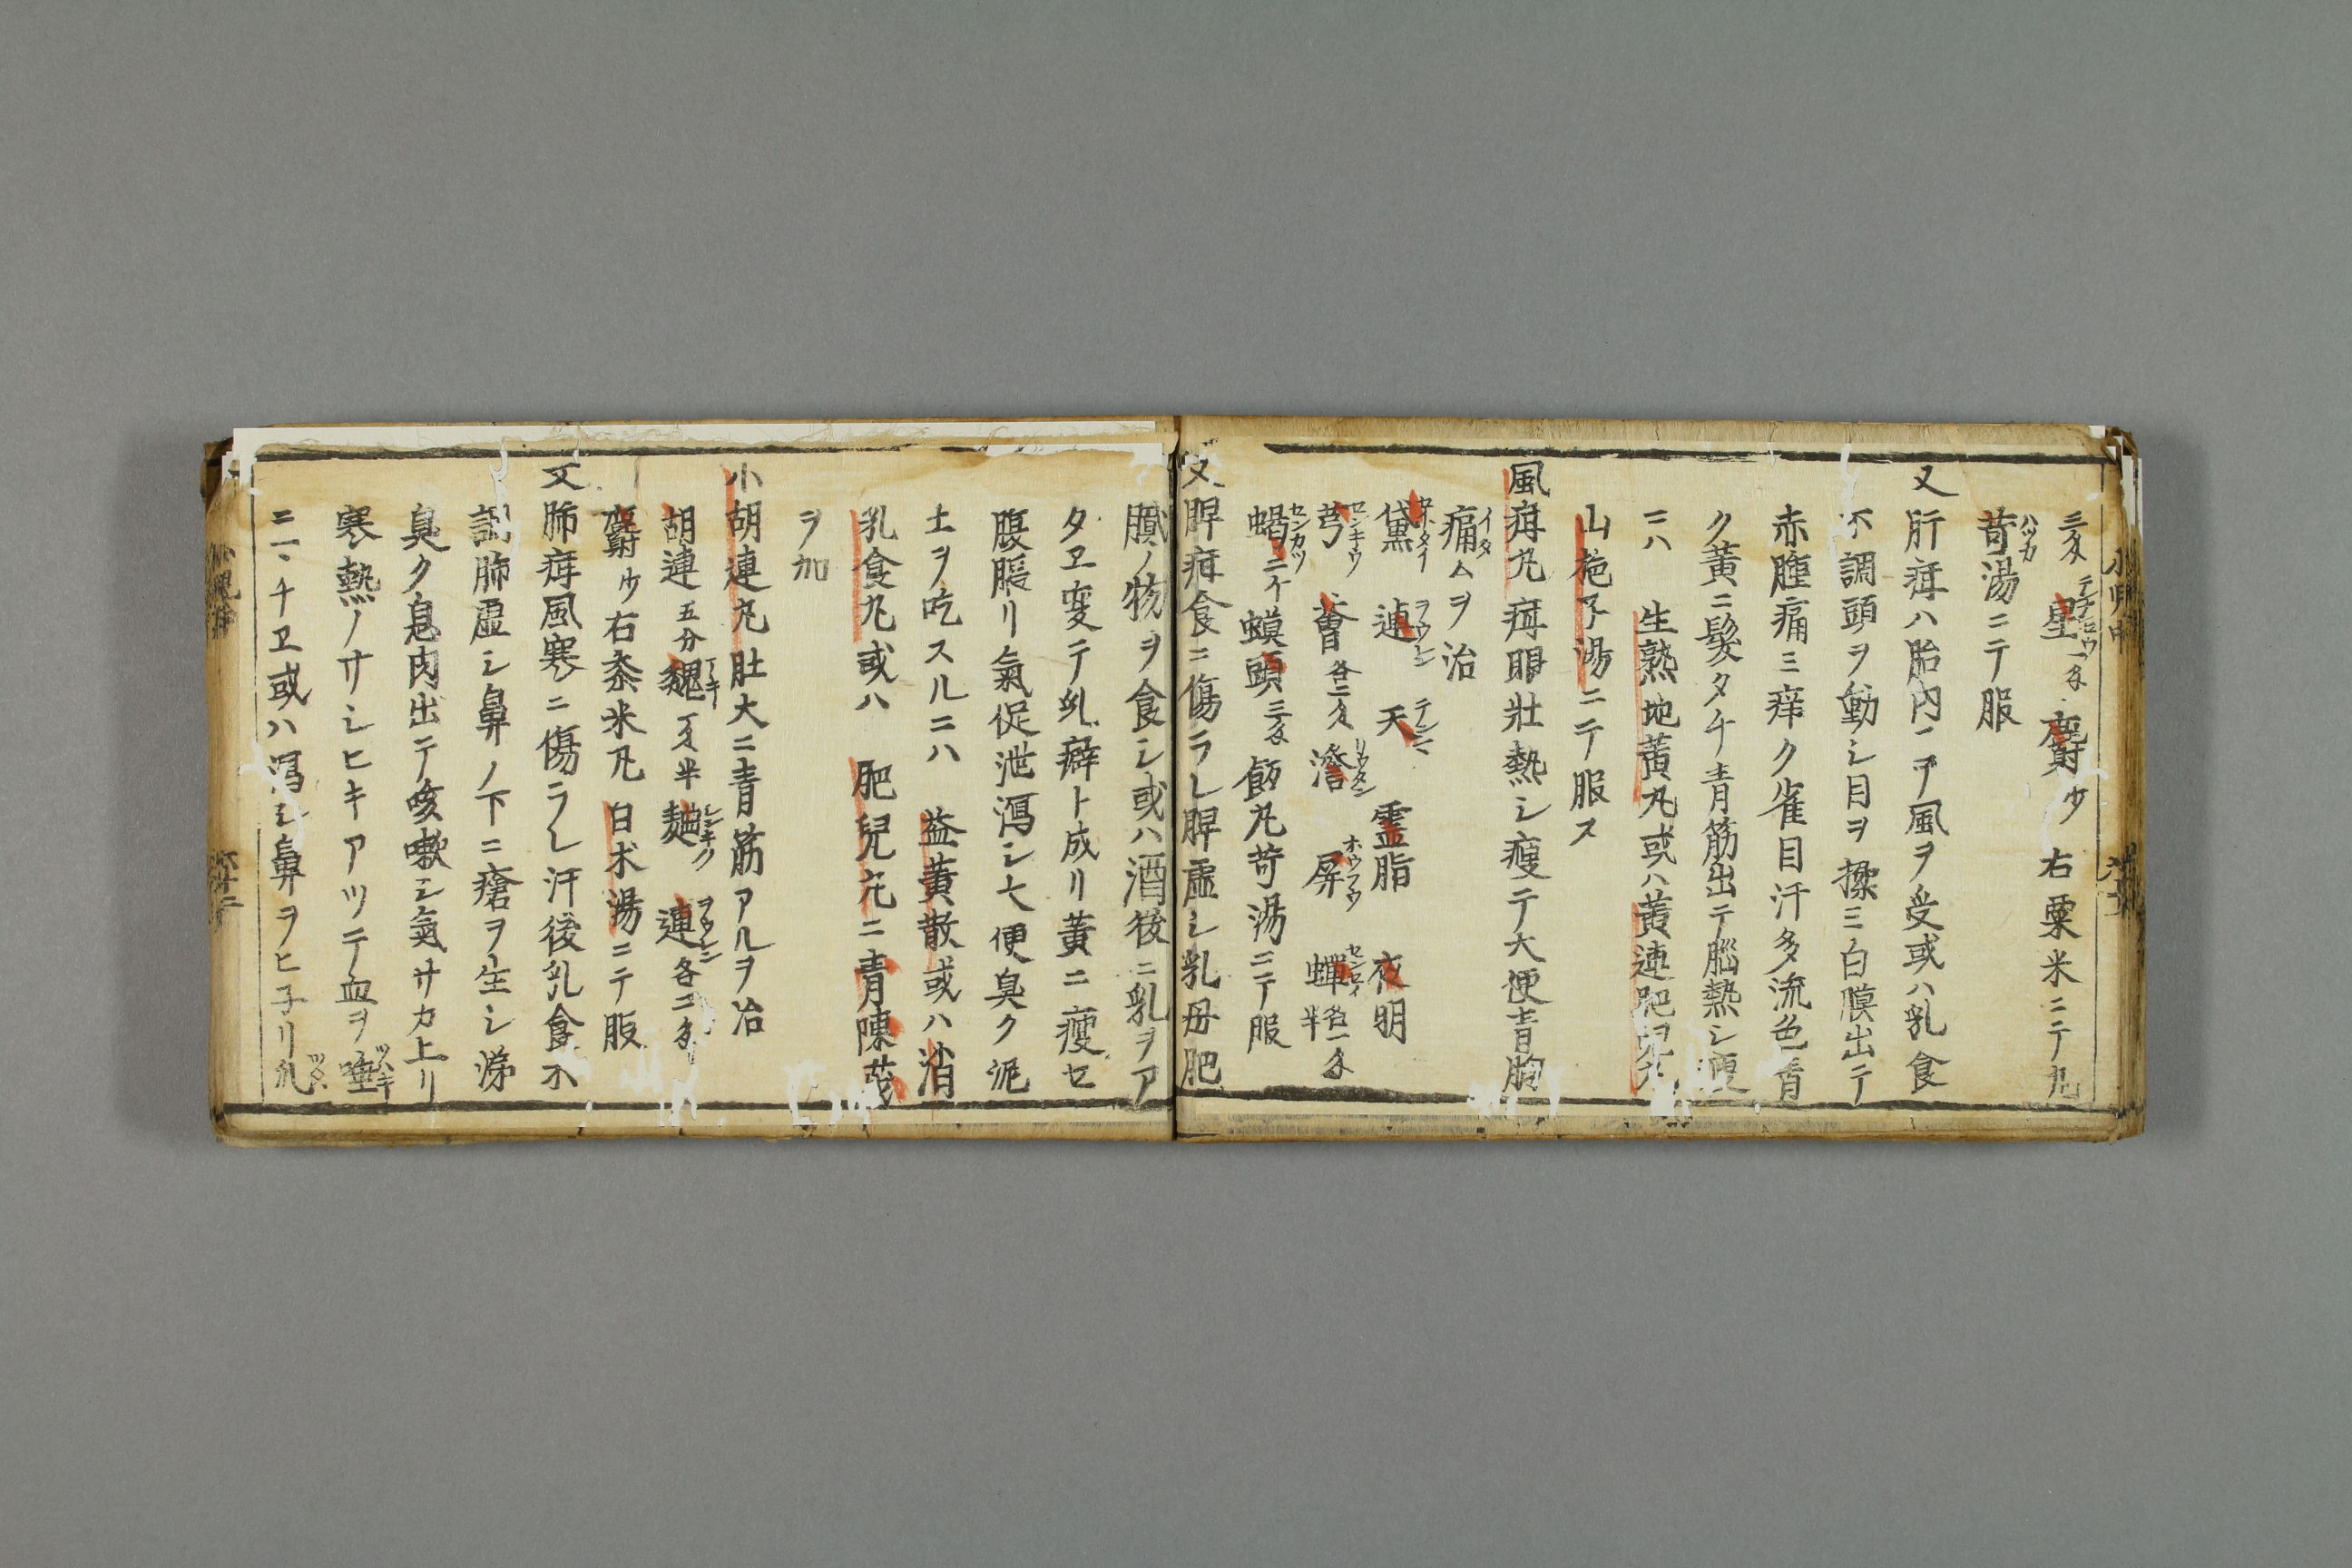 三匁 星一匁 麝少 右粟米ニテ丸
苛湯ニテ服
又肝疳ハ胎内ニテ風ヲ受或ハ乳食
不調頭ヲ動シ目ヲ揉ミ白膜出テ
赤腫痛ミ痒ク雀目汗多流色青
ク黄ニ髪タチ青筋出テ脳熱シ痩
ニハ 生熟地黄丸或ハ黄連肥児丸
山梔子湯ニテ服ス
風疳丸疳眼壮熱シ痩テ大便青胸
痛ムヲ治
黛 連 天 霊脂 夜明
芎 薈各二匁 澄 屏 蟬各一匁半
蝎二ケ 蟆頭三匁 飯丸苛湯ニテ服
又脾疳食ニ傷ラレ脾虚シ乳母肥
膩ノ物ヲ食シ或ハ酒後ニ乳ヲア
タヱ変テ乳癖ト成リ黄ニ痩セ
腹脹リ氣促泄瀉シ大便臭ク泥
土ヲ吃スルニハ 益黄散或ハ消
乳食丸或ハ 肥兒丸ニ青陳莪
ヲ加
小胡連丸肚大ニ青筋アルヲ治
胡連五分 魏一匁半 麯 連各二匁
麝少右黍米丸 白朮湯ニテ服
又肺疳風寒ニ傷ラレ汗後乳食不
調肺虚シ鼻ノ下ニ瘡ヲ生シ涕
臭ク息肉出テ咳嗽シ氣サカ上リ
寒熱ノサシヒキアツテ血ヲ唾
ニハチヱ或ハ瀉シ鼻ヲヒ子リ爪